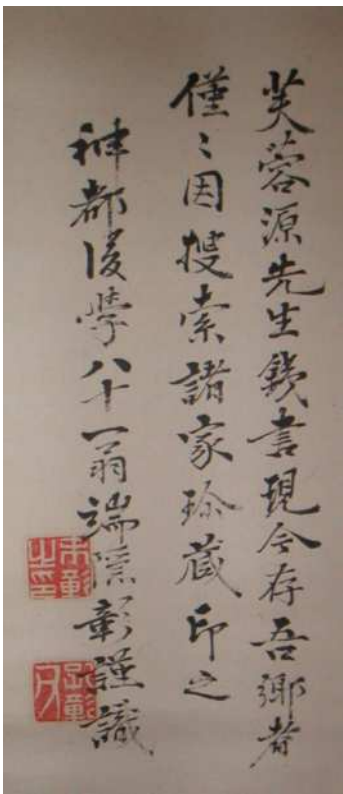 芙蓉源先生鐵書現今存吾郷者
僅〻因搜索諸家珍蔵印之
神都後學八十一翁端隠彰謹識